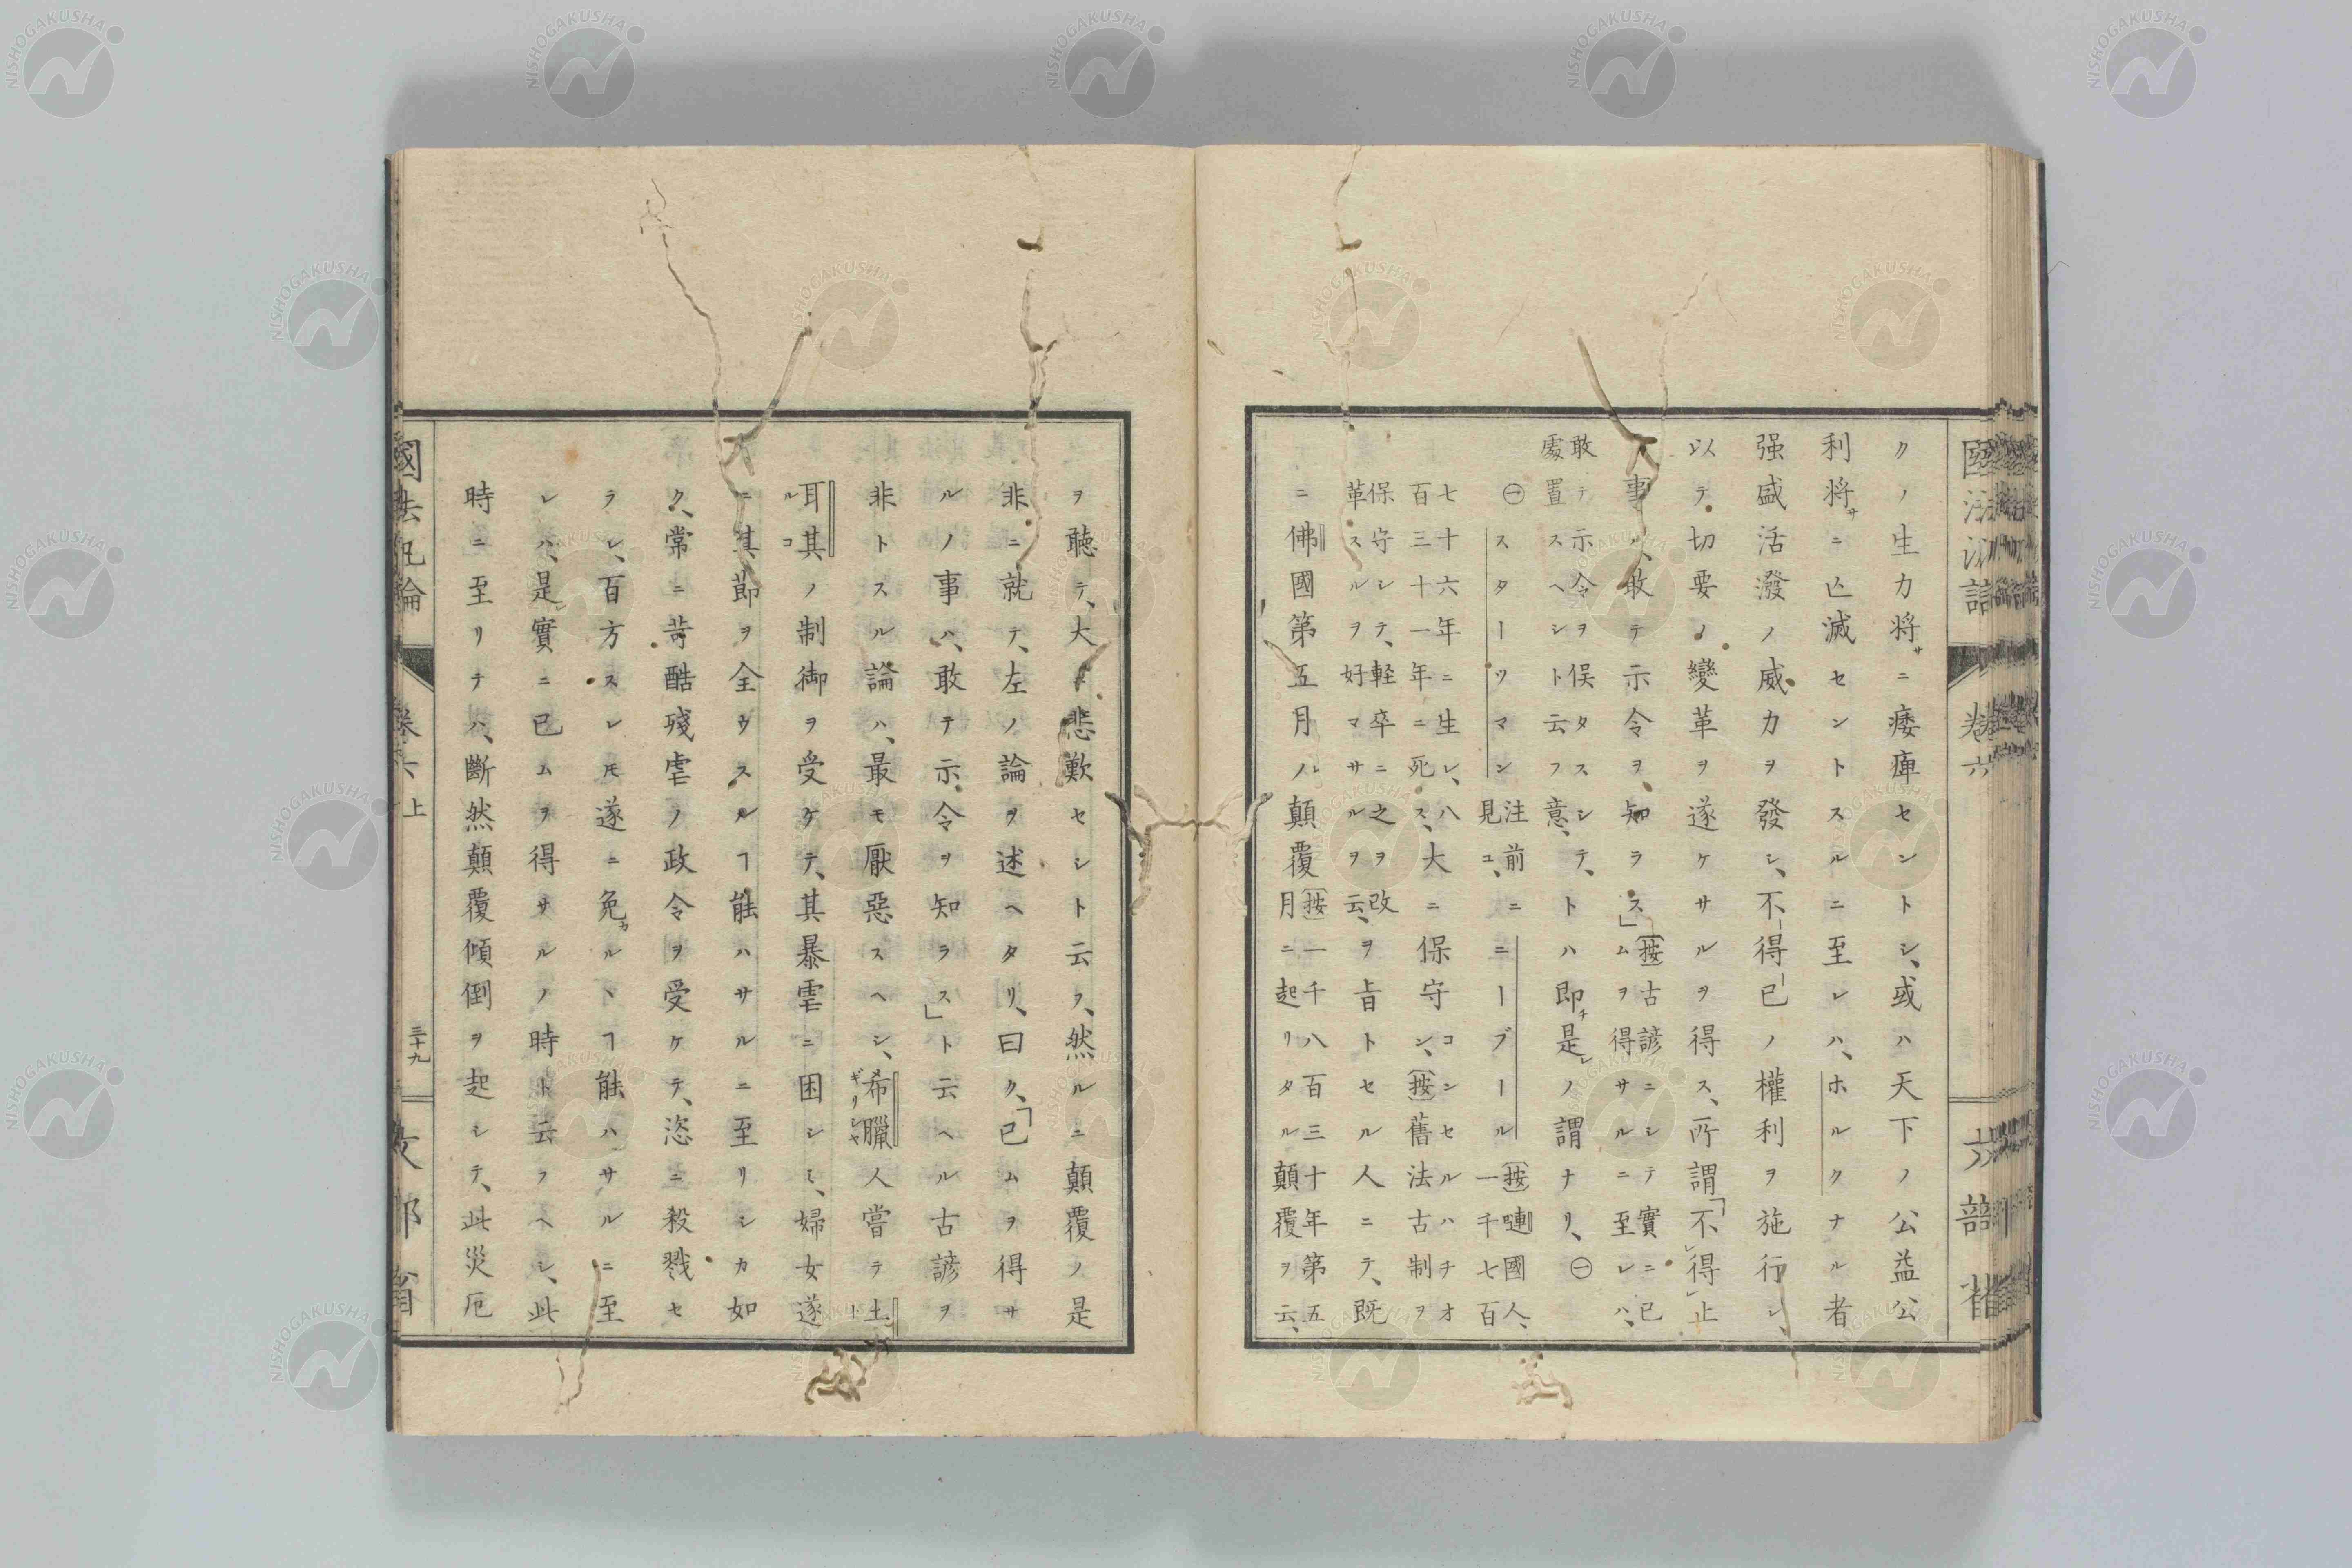 クノ生力将サニ痿痺セントシ、或ハ天下ノ公益公
利将サニ亡滅セントスルニ至レハ、ホルクナル者
强盛活潑ノ威力ヲ發シ、不得已ノ權利ヲ施行シ、
以テ切要ノ變革ヲ遂ケサルヲ得ス、所謂「不レ得レ止
事ハ、敢テ示令ヲ知ラス」〔按〕古諺ニシテ實ニ已
ムヲ得サルニ至レハ、
敢テ示令ヲ俟タスシテ、
處置スヘシト云フ意、トハ即チ是レノ謂ナリ、㊀
㊀スターツマン注前ニ
見ユ、ニーブール〔按〕嗹國人、
一千七百
七十六年ニ生レ、八
百三十一年ニ死ス、大ニ保守シ、コンセルハチオ
〔按〕舊法古制ヲ
保守シテ、軽卒ニ之ヲ改
革スルヲ好マサルヲ云、ヲ旨トセル人ニテ、既
ニ佛國第五月ノ顛覆〔按〕一千八百三十年第五
月ニ起リタル顛覆ヲ云、
國法汎論
卷六
文部省
ヲ聽テ、大ニ悲歎セシト云フ、然ルニ顛覆ノ是
非ニ就テ、左ノ論ヲ述ヘタリ、曰ク、「已ムヲ得サ
ルノ事ハ、敢テ示令ヲ知ラス」ト云ヘル古諺ヲ
非トスル論ハ、最モ厭惡スヘシ、希臘ギリシヤ人嘗テ土
耳其ルコノ制御ヲ受ケテ、其暴虐ニ困シミ、婦女遂
ニ其節ヲ全ウスルヿ能ハサルニ至リシカ如
ク、常ニ苛酷殘虐ノ政令ヲ受ケテ、恣ニ殺戮セ
ラレ、百方スレ𪜈遂ニ免カルヽヿ能ハサルニ至
レハ、是レ實ニ已ムヲ得サルノ時ト云フヘシ、此
時ニ至リテハ、斷然顛覆傾倒ヲ起シテ、此災厄
國法汎論
卷六上
三十九
文部省
NISHOGAKUSHA